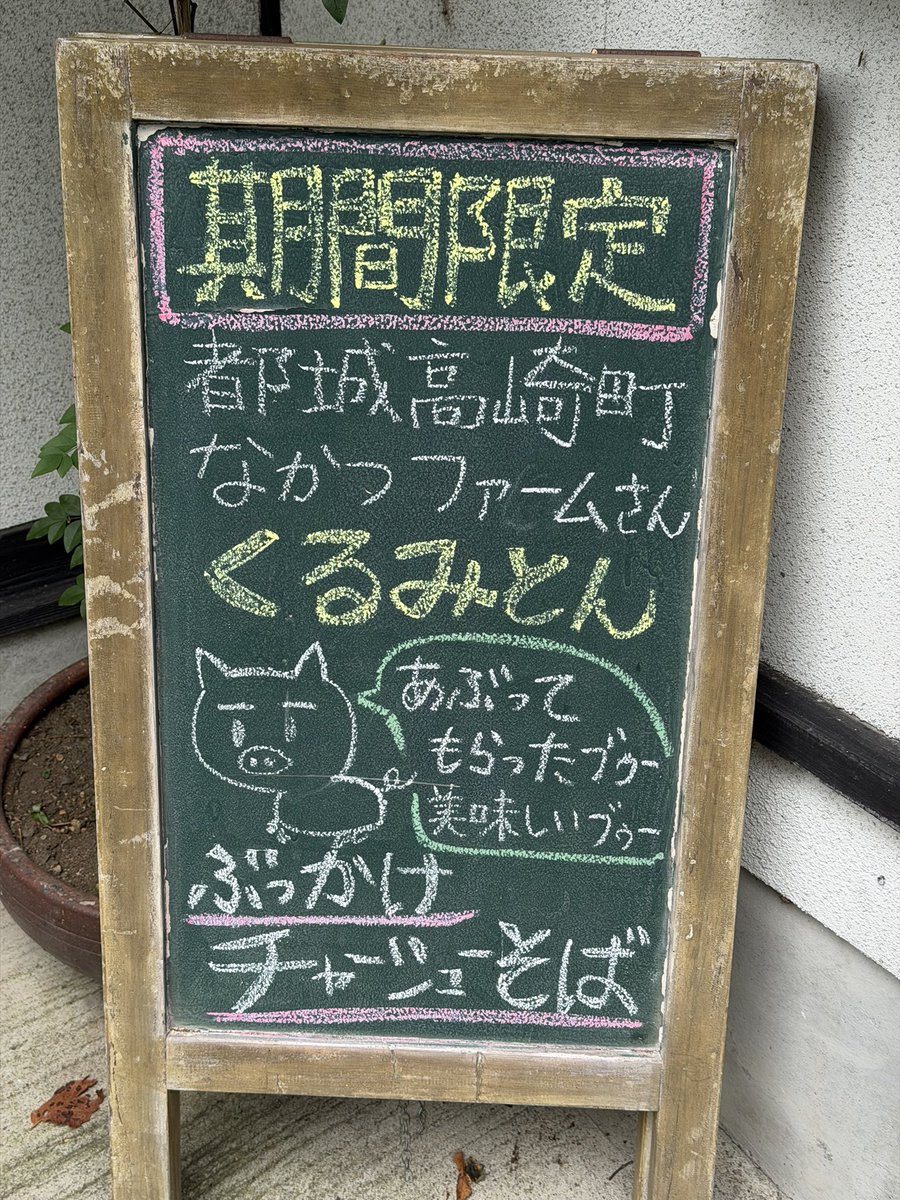 期間限定
都城高崎町
なかつファームさん
くるみとん
あぶって
もらったブゥー
美味しいブゥー
ぶっかけ
チャージューそば